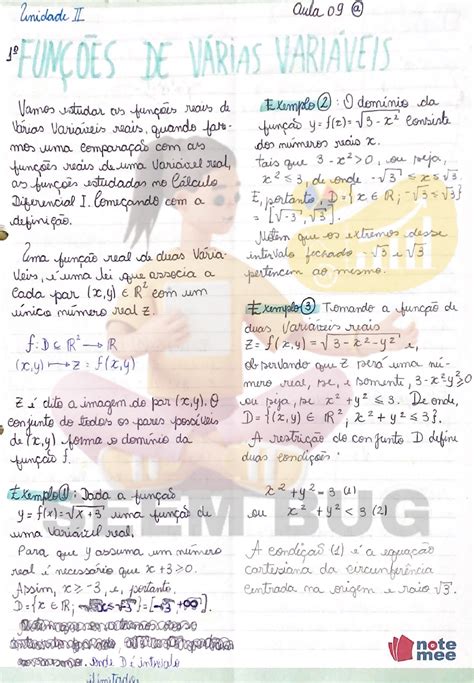 Unidade II
Aula 09 @
1º FUNÇÕES DE VÁRIAS VARIÁVEIS
Vamos estudar as funções reais de
Várias Variáveis reais, quando faze-
mos uma comparação com as
funções reais de uma Variável real,
as funções estudadas no Cálculo
Diferencial I. Começando com a
definição.
Uma função real de duas Variá-
Veis, é uma lei que associa a
Cada par (x,y) ∈ R² com um
único número real z.
f: D ⊆ R² → R
(x,y) ↦ z = f(x,y)
Z é dito a imagem do par (x,y). O
conjunto de todos os pares possíveis
de (x,y) forma o domínio da
função f.
Exemplo ①: Dada a função
y = f(x) = √x+3 uma função de
uma Variável real.
Para que y assuma um número
real é necessário que x+3 ≥ 0.
Assim, x ≥ -3, e, portanto,
D = {x ∈ R;
onde D é intervalo
ilimitado
Exemplo ②: O domínio da
função y = f(x) = √3-x² consiste
dos números reais x.
tais que 3-x² ≥ 0, ou seja,
x² ≤ 3, de onde -√3 ≤ x ≤ √3.
E, portanto, D = {x ∈ R; -√3 ≤ √3}
= [√-3, √3].
Notem que os extremos desse
intervalo fechado -√3 e √3
pertencem ao mesmo.
Exemplo ③ Tomando a função de
duas Variáveis reais
Z = f(x,y) = √3-x²-y² e,
observando que Z será uma nú-
mero real, se, e somente, 3-x²-y² ≥ 0
ou seja, se x²+y² ≤ 3. De onde,
D = {(x,y) ∈ R²; x²+y² ≤ 3}.
A restrição do conjunto D define
duas condições:
x²+y² = 3 (1)
ou x²+y² < 3 (2)
A condição (1) é a equação
cartesiana da circunferência
centrada na origem e raio √3.
STEM BUG
note
mee